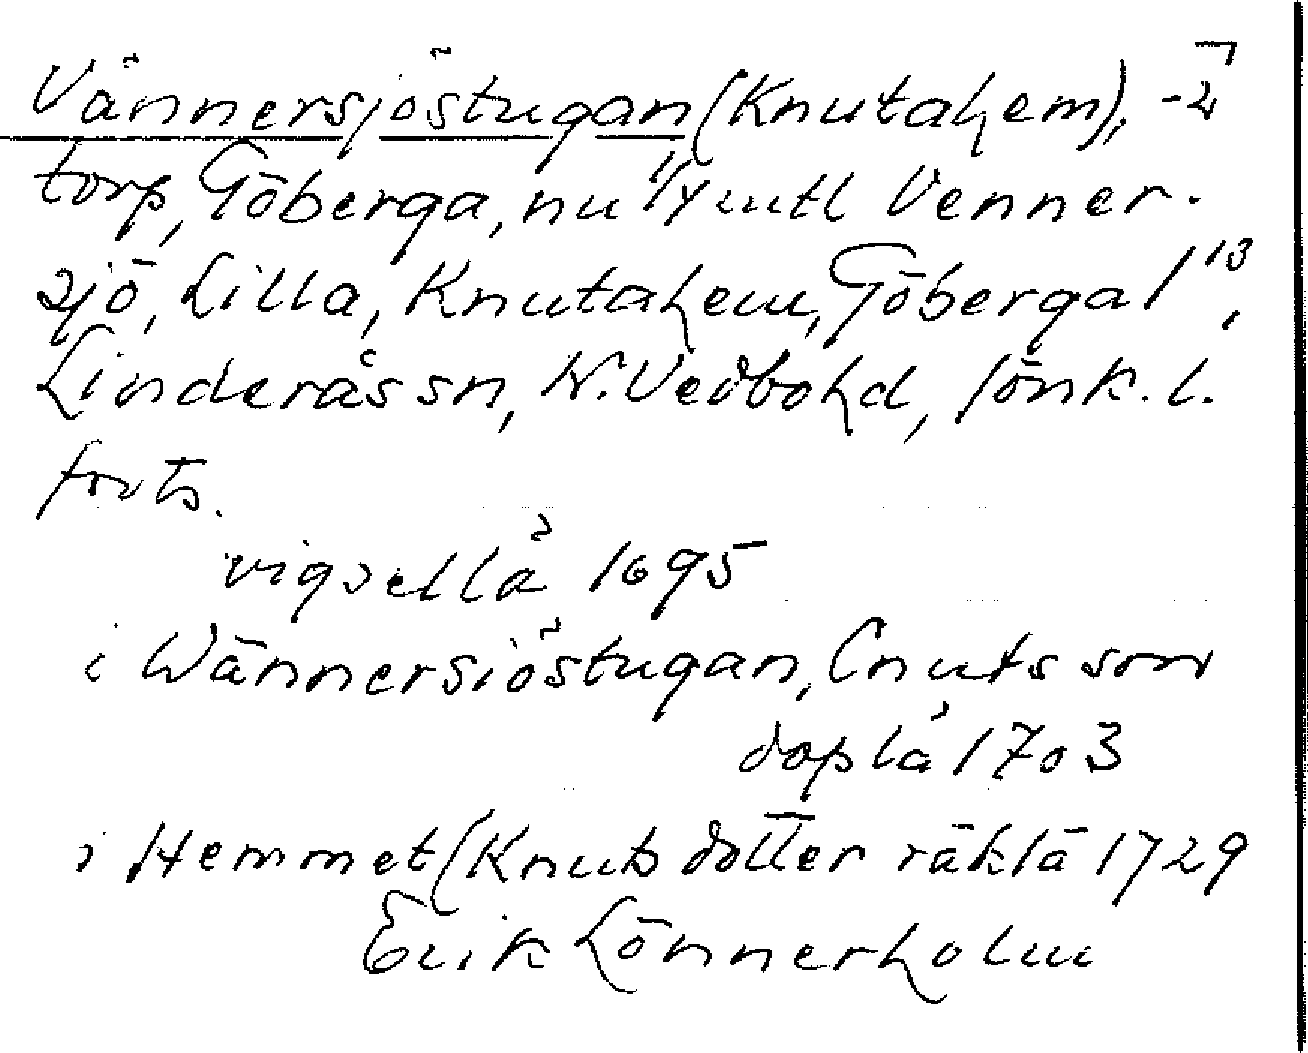 Vännersjöstugan (Knutahem), -2
torp, Göberga, nu 1/4 mtl Venner-
sjö, Lilla, Knutahem, Göberga 1 13,
Linderås sn, N. Vedbo hd, Jönk. l.
forts.
vigsellä 1695
i Wännersiöstugan, Cnuts son
doplä 1703
i Hemmet (Knuts dotter räklä 1729
Erik Lönnerholm